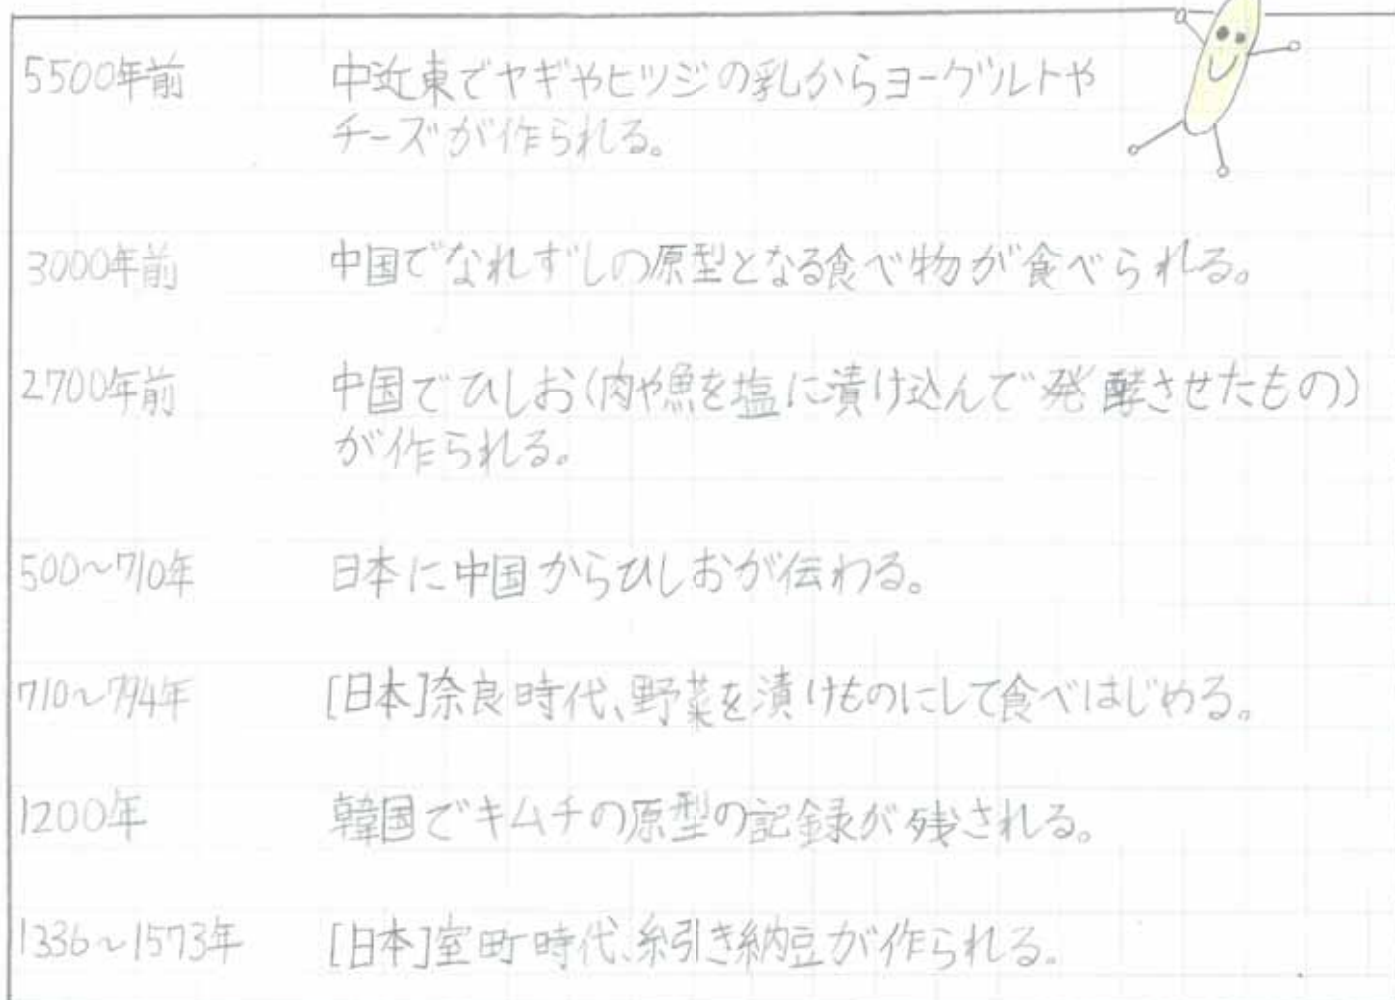 5500年前 中近東でヤギやヒツジの乳からヨーグルトや
チーズが作られる。
3000年前 中国でなれずしの原型となる食べ物が食べられる。
2700年前 中国でひしお(肉や魚を塩に漬け込んで発酵させたもの)
が作られる。
500~710年 日本に中国からひしおが伝わる。
710~794年 [日本]奈良時代、野菜を漬けものにして食べはじめる。
1200年 韓国でキムチの原型の記録が残される。
1336~1573年 [日本]室町時代、糸引き納豆が作られる。